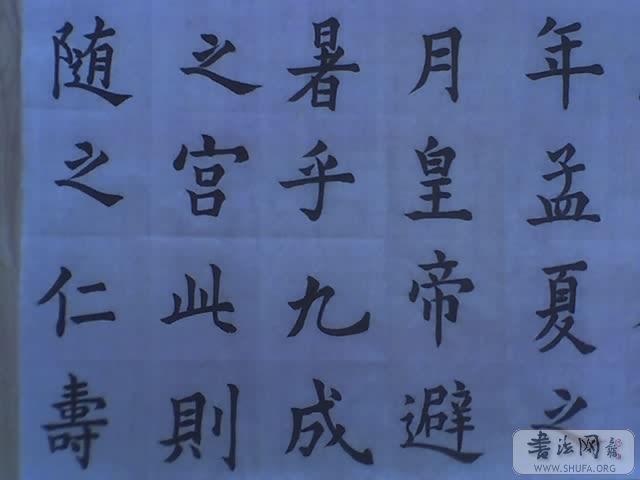 年孟夏之
月皇帝避
暑乎九成
之宮此則
随之仁壽
書法网
WWW.SHUFA.ORG